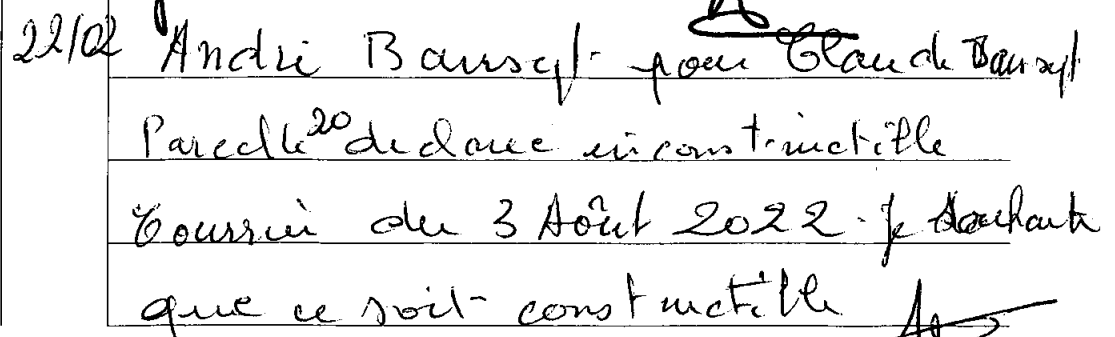 22/02 André Bausset pour Claude Bausset
Parcelle 20 declaree inconstructible
Courrier du 3 Août 2022. Je souhaite
que ce soit constructible